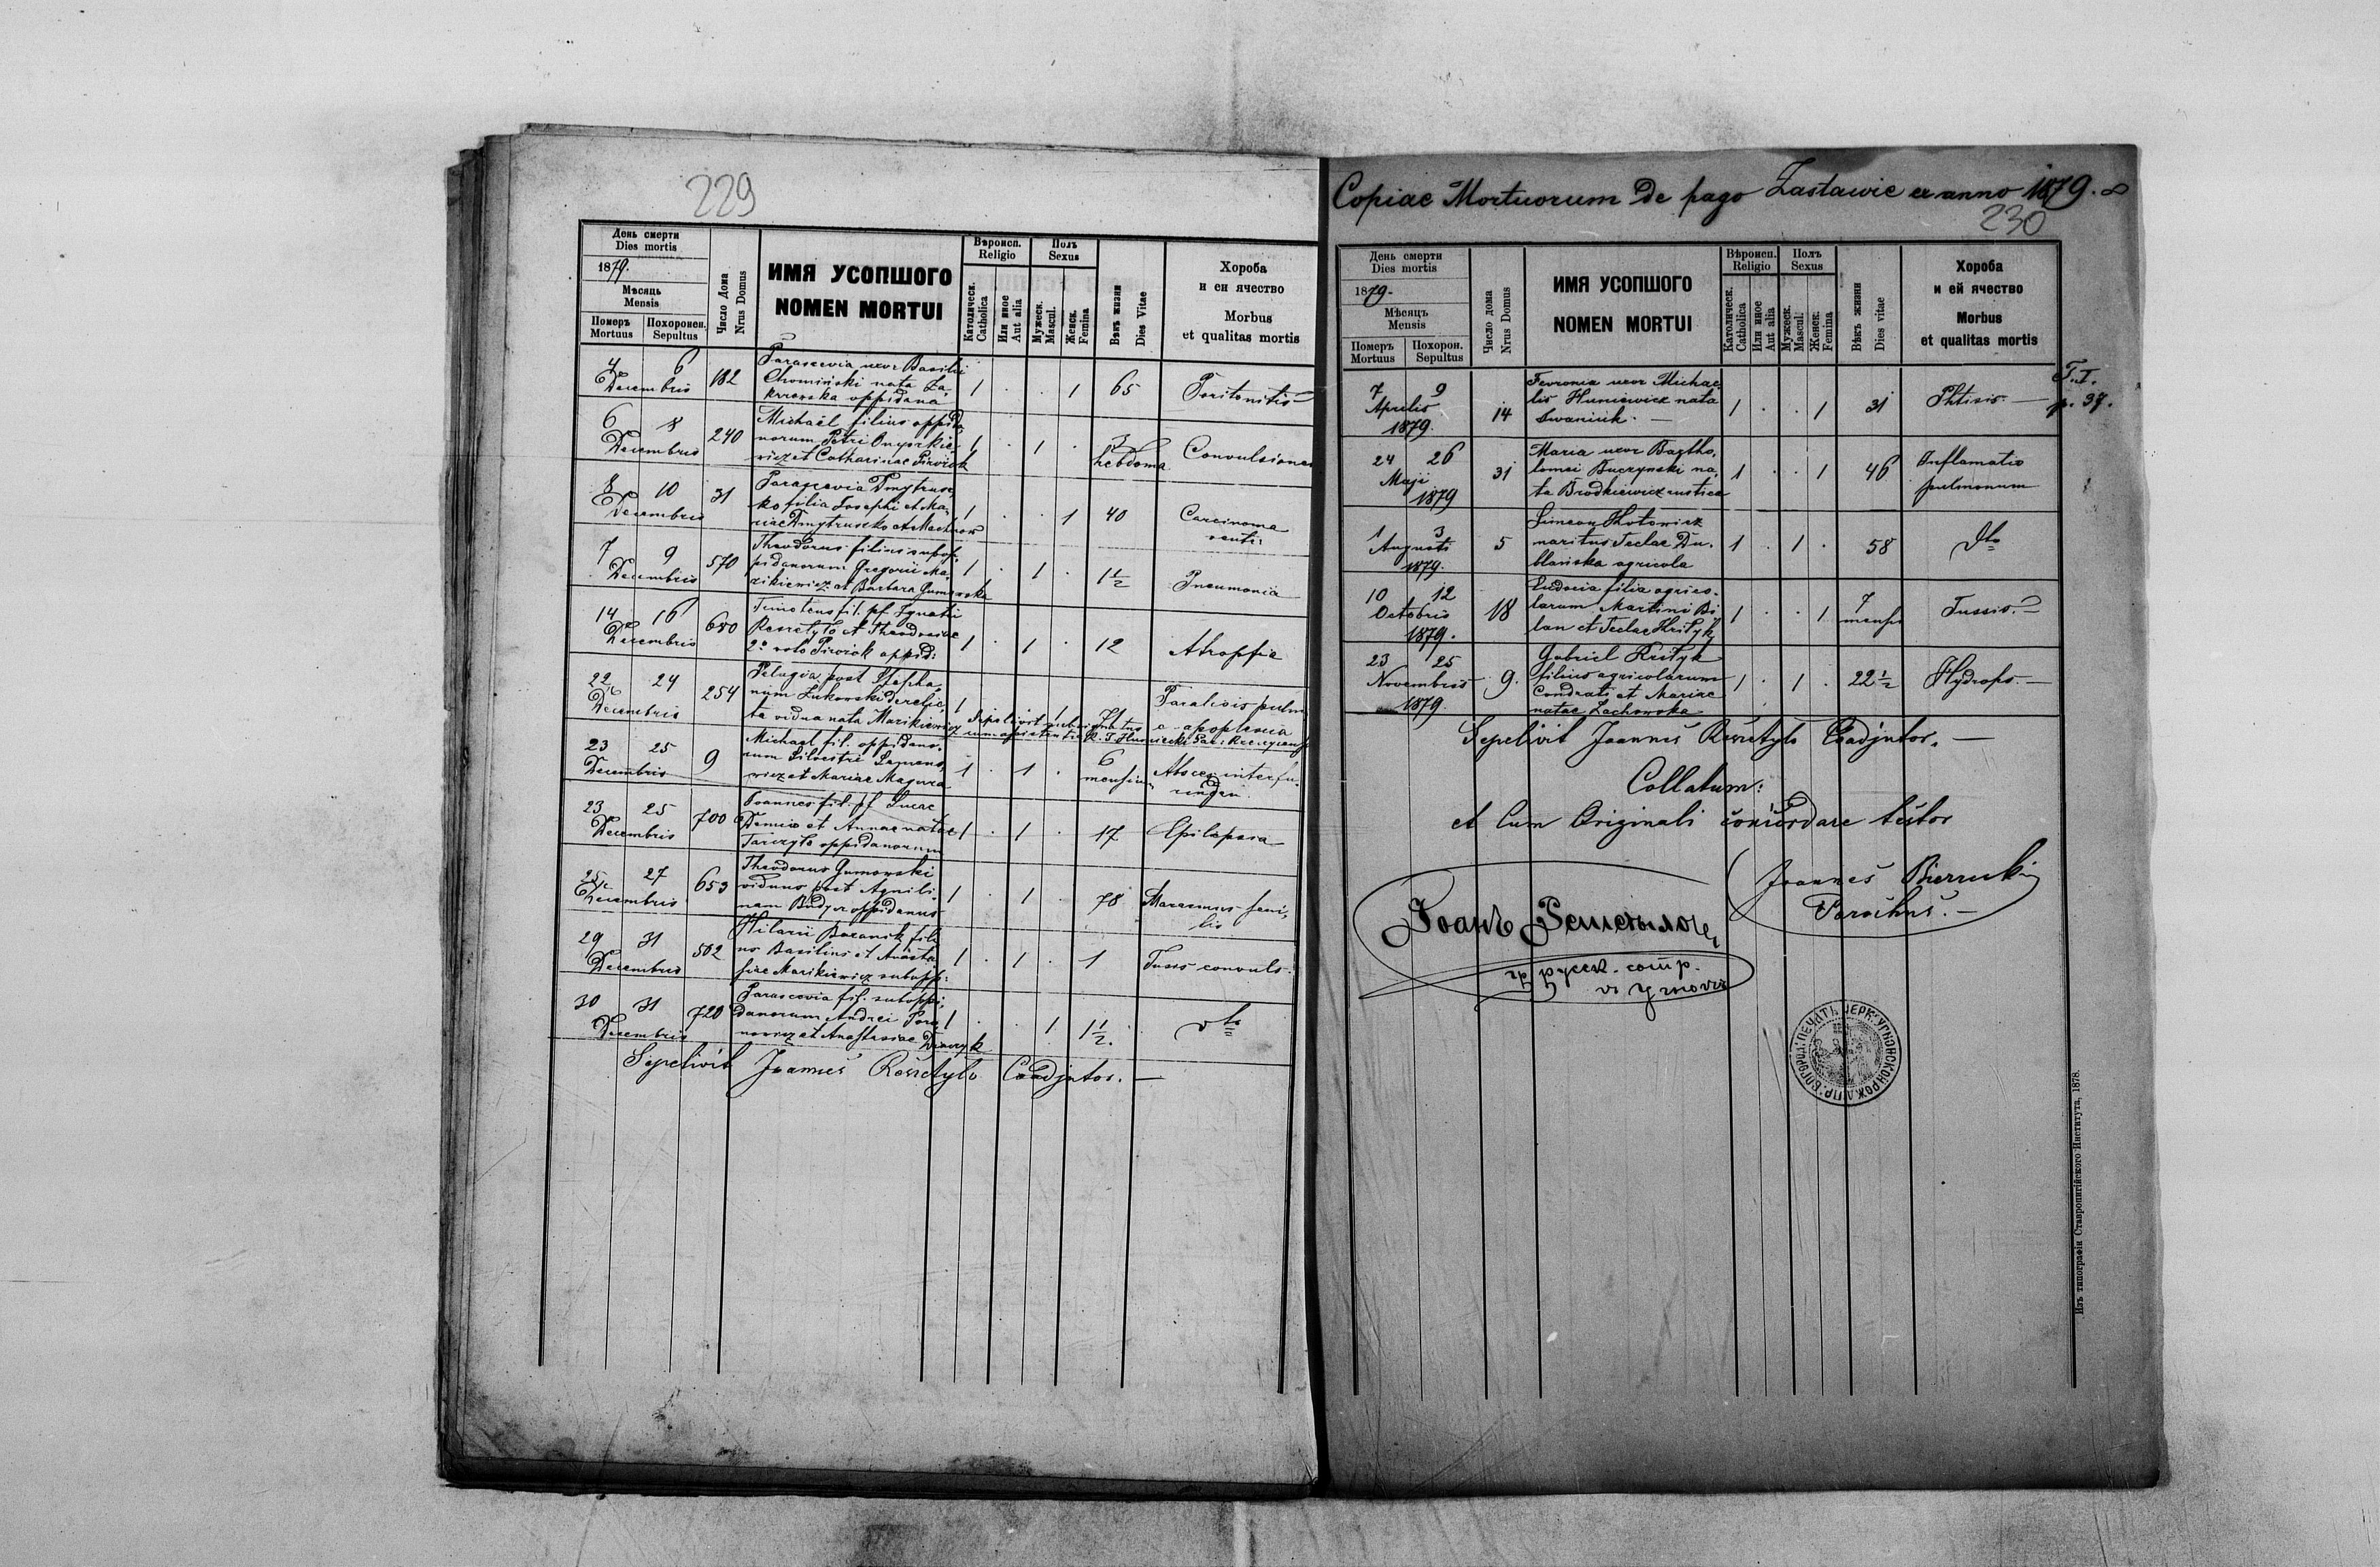 229
День смерти
Dies mortis
1879.
Мѣсяць
Mensis
Померъ
Mortuus
Похоронен.
Sepultus
Число Дома
Nrus Domus
ИМЯ УСОПШОГО
NOMEN MORTUI
Вѣроисп.
Religio
Католическ.
Catholica
Или иное
Aut alia
Полъ
Sexus
Мужеск.
Mascul.
Женск.
Femina
Вѣкъ жизни
Dies Vitae
Хороба
и еи ячество
Morbus
et qualitas mortis
4 6
Decembris
182
Parascevia uxor Basilii
Chomiński nata Za-
krewska oppidana
1 . . 1
65
Peritonitis
6 8
Decembris
240
Michaël filius oppida-
norum Petri Onyszkie-
wicz et Catharinae Piwiok
1 . 1 .
3
hebdoma
Convulsiones
8 10
Decembris
31
Parascevia Dmytrusz-
ko filia Josephi et Ma-
riae Dmytruszko
1 . . 1
40
Carcinoma
7 9
Decembris
570
Theodorus filius subop-
pidanorum Gregorii Ma-
zikiewicz et Barbara Gumowska
1 . 1 .
1 1/2
Pneumonia
14 16
Decembris
650
Timoteus fil. pf Ignatii
Reszetyło et Theodosiae
2° voto Piwiok oppid:
1 . 1 .
12
Atrophia
22 24
Decembris
254
Pelagia post Stepha-
num Żukowski derelic-
ta vidua nata Mazikiewicz
1
71
Paralisis pulm
e apoplexia
23 25
Decembris
9
Michael fil. oppidano-
rum Silvestri
wicz et Mariae Magura
1 . 1 .
6
mensium
23 25
Decembris
700
Joannes fil. pf Lucae
Demico et Annae natae
Tarczyło oppidanorum
1 . 1 .
17
Epilepsia
25 27
Decembris
653
Theodorus Gumowski
viduus post Agripi-
nam oppidanus
1 . 1 .
78
Marasmus seni-
lis
29 31
Decembris
502
Hilarii Bazanik fili-
us Basilius et Anasta-
siae Mazikiewicz subopp:
1 . 1 .
1
Tussis convuls.
30 31
Decembris
720
Parascevia fil. suboppi-
danorum Andrei
et Anastasiae
1 . . 1
1 1/2.
dto
Sepelivit Joannes Reszetyło Coadjutor. —
Copiae Mortuorum De pago Zastawie ex anno 1879.
230
День смерти
Dies mortis
1879.
Мѣсяцъ
Mensis
Померъ
Mortuus
Похорон.
Sepultus
Число дома
Nrus Domus
ИМЯ УСОПШОГО
NOMEN MORTUI
Вѣроисп.
Religio
Католическ.
Catholica
Или иное
Aut alia
Полъ
Sexus
Мужеск.
Mascul.
Женск.
Femina
Вѣкъ жизни
Dies vitae
Хороба
и ей ячество
Morbus
et qualitas mortis
T. I.
p. 37.
7 9
Aprilis
1879.
14
Fevronia uxor Michae-
lis Huniewicz nata
Iwaniuk. —
1 . . 1
31
Phtisis. —
24 26
Maji
1879
31
Maria uxor Bartho-
lomei Buczynski na-
ta Brodkiewicz rustica
1 . . 1
46
Inflamatio
pulmonum
1 3
Augusti
1879.
5
Simeon Hotowicz
maritus Teclae Du-
blańska agricola
1 . 1 .
58
dto
10 12
Octobris
1879.
18
Eudocia filia agrico-
larum Martini Bi-
lan et Teclae Hrityk
1 . . 1
7
mens
Tussis.
23 25
Novembris
1879.
9.
Gabriel Krityk
filius agricolarum
Condrati et Mariae
natae Lachowska
1 . 1 .
22 1/2
Hydrops. —
Sepelivit Joannes Reszetyło Coadjutor. —
Collatum:
et Cum Originali concordare testor
Joannes Bierecki
Parochus. —
Іоаннъ Решетыло
гр. русск. сотр.
въ Угновѣ
Изъ типографіи Ставропигійского Института, 1878.